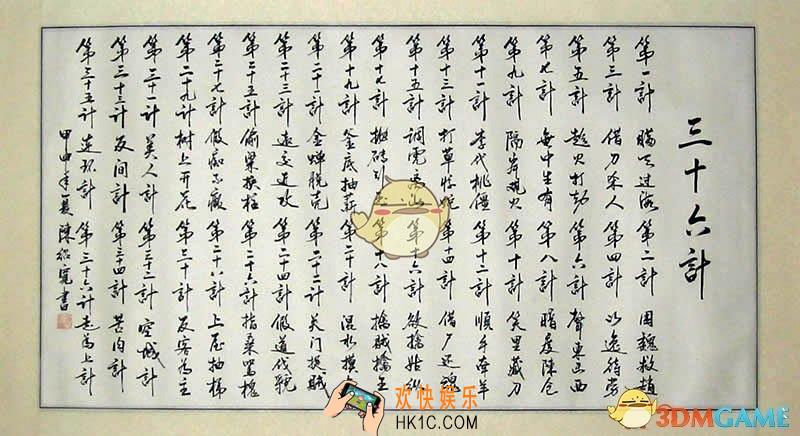 三十六計
第一計 瞞天过海 第二計 围魏救趙
第三計 借刀杀人 第四計 以逸待劳
第五計 趁火打劫 第六計 聲東击西
第七計 無中生有 第八計 暗度陳仓
第九計 隔岸观火 第十計 笑里藏刀
第十一計 李代桃僵 第十二計 順手牵羊
第十三計 打草惊蛇 第十四計 借尸还魂
第十五計 調虎离山 第十六計 欲擒姑纵
第十七計 拋砖引 第十八計 擒賊擒王
第十九計 釜底抽薪 第二十計 混水摸
第二十一計 金蝉脫壳 第二十二计 关门捉贼
第二十三計 远交近攻 第二十四計 假道伐虢
第二十五計 偷梁换柱 第二十六計 指桑骂槐
第二十七計 假痴不癫 第二十八計 上屋抽梯
第二十九計 树上开花 第三十計 反客为主
第三十一計 美人計 第三十二計 空城計
第三十三計 反间計 第三十四計 苦肉計
第三十五計 連环計 第三十六計 走为上計
甲申年夏 陳 寬書
欢快娱乐
HK1C.COM
3DMGAME